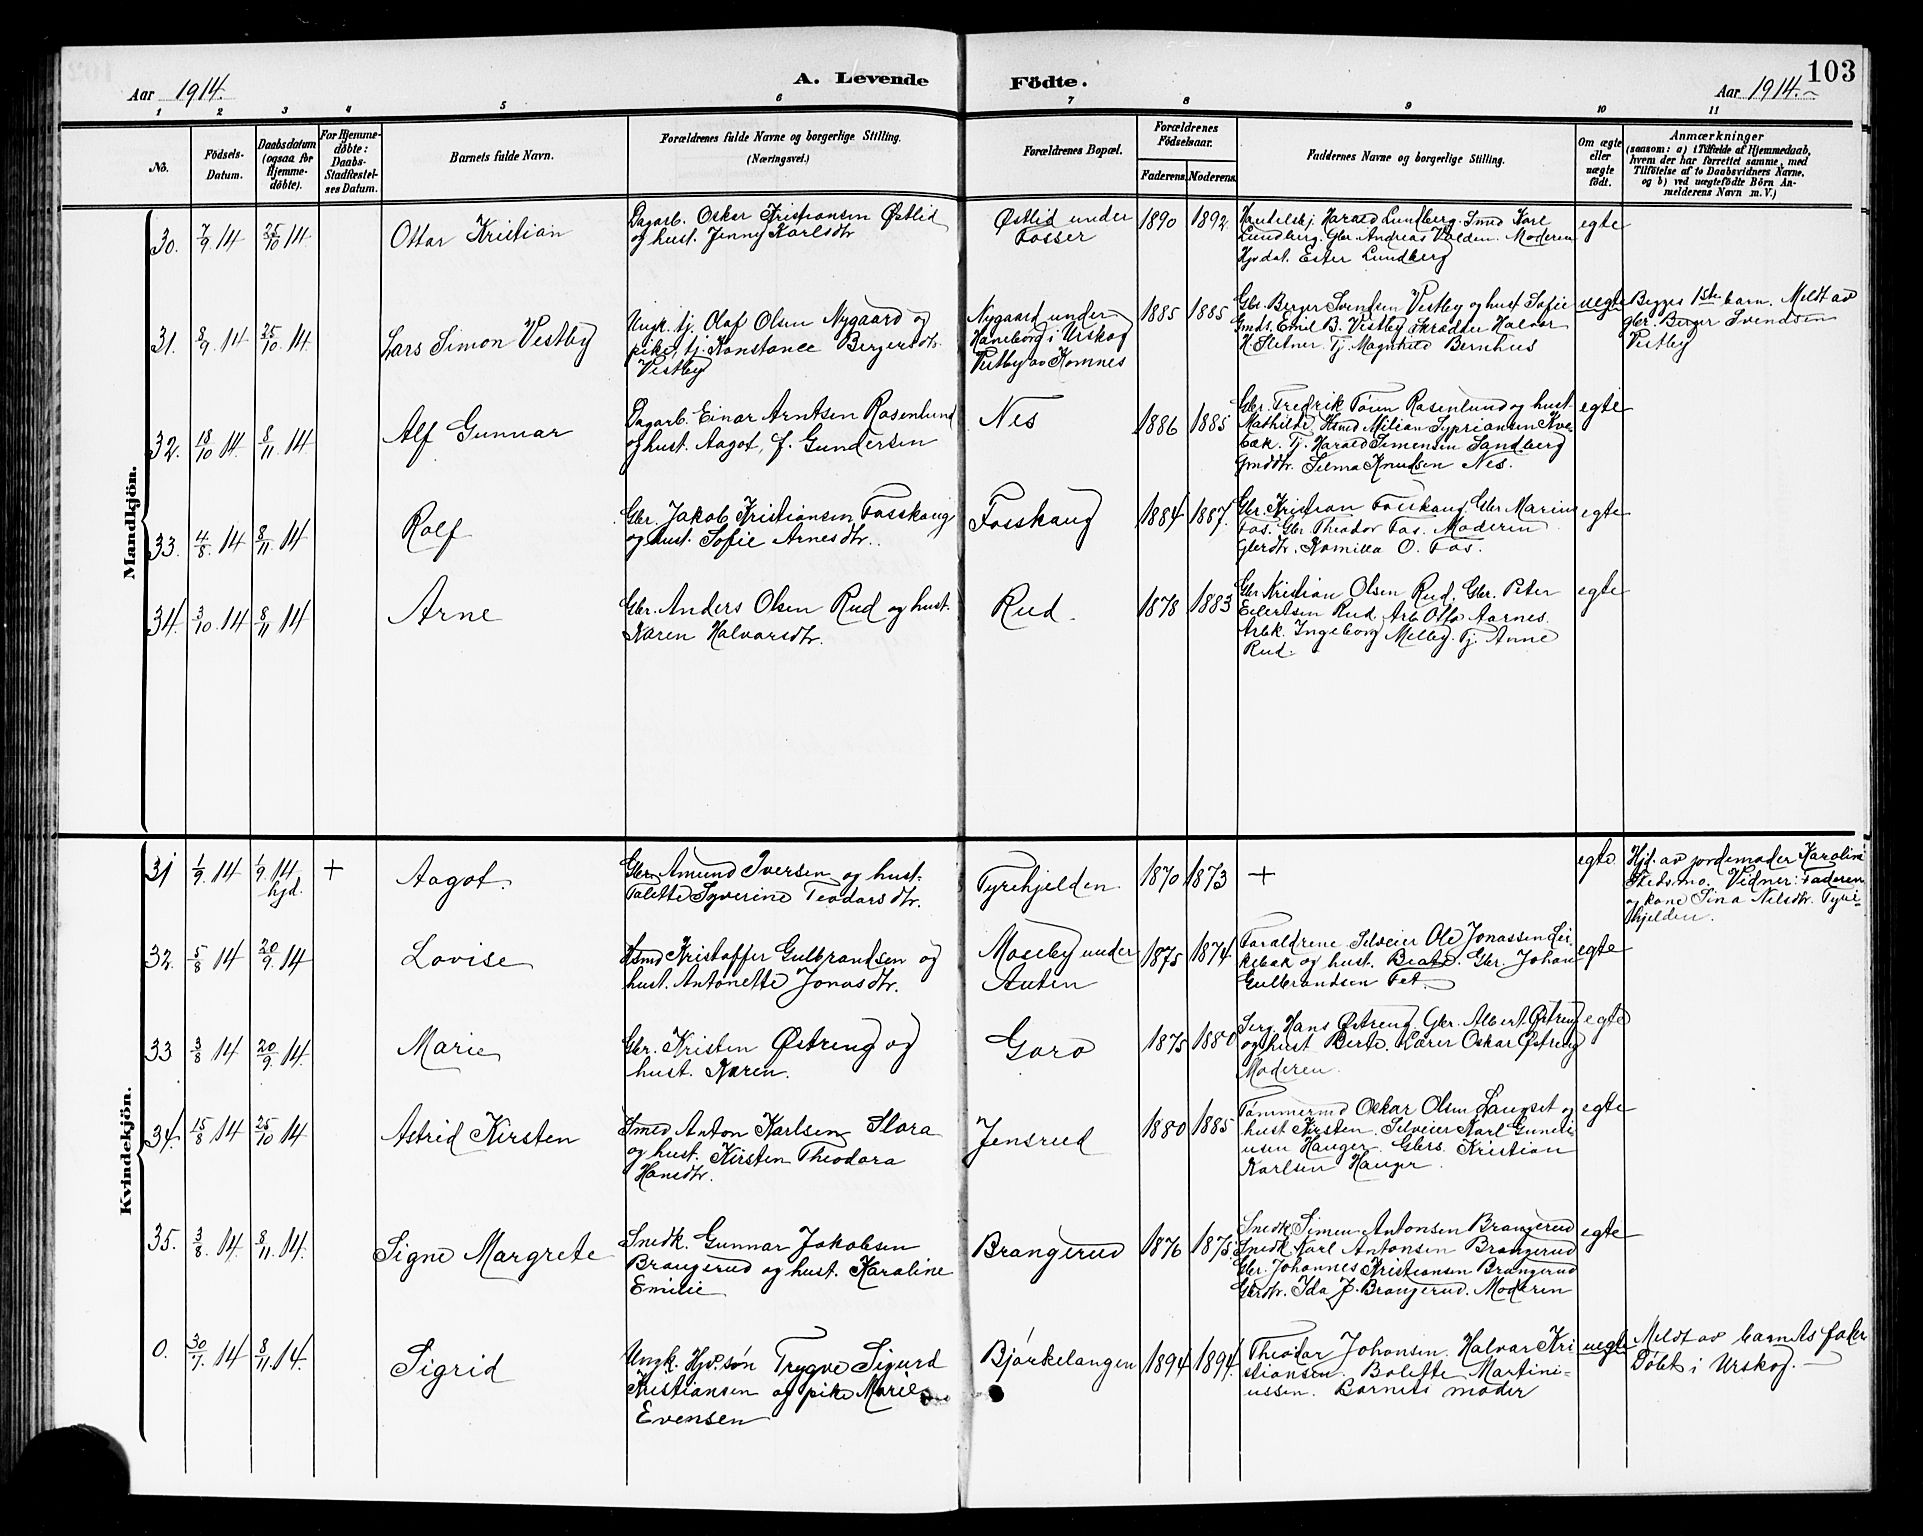 103
Aar 1914.
A. Levende
Födte.
Aar 1914.
1 2 3 4 5 6 7 8 9 10 11
No.
Födsels-
Datum.
Daabsdatum
(ogsaa for
Hjemme-
döbte).
For Hjemme-
döbte:
Daabs-
Stadfæstel-
ses Datum.
Barnets fulde Navn.
Forældrenes fulde Navne og borgerlige Stilling.
(Næringsvei.)
Forældrenes Bopæl.
Forældrenes
Födselsaar.
Faderens. Moderens.
Faddernes Navne og borgerlige Stilling.
Om ægte
eller
uægte
födt.
Anmærkninger
(saasom: a) i Tilfælde af Hjemmedaab,
hvem der har forrettet samme, med
Tilföielse af to Daabsvidners Navne,
og b) ved uægtefödte Börn An-
melderens Navn m. V.)
Mandkjön.
30. 7/9 14 25/10 14 Ottar Kristian
Dagarb. Oskar Kristiansen Østlid
og hust. Jenny Karlsdtr
Østlid under
Fosser
1890 1892
Handelsbj. Harald Lundberg. Smed Karl
Lundberg. Gbr. Andreas Valden. Moderen
Hjvdat. Ester Lundberg
egte
31. 8/9 14 25/10 14. Lars Simon Vestby
Ungk. tj. Olaf Olsen Nygaard og
pike tj. Konstance Bergersdtr.
Vestby
Nygaard under
Haneborg i Urskog
Vestby av Komnes
1885 1885
Gbr. Berger Svendsen Vestby og hust Sofie
Gmds. Emil B. Vestby Skrædder Halvor
H. Sletner. Tj. Magnhild Bernhus
uegte
Begges 1ste barn. Meldt av
gbr. Berger Svendsen
Vestby
32. 18/10 14. 8/11 14 Alf Gunnar
Dagarb. Einar Arntsen Rosenlund
og hust. Aagot, f. Gundersen
Nes
1886 1885
Gbr. Fredrik Rosenlund og hust.
Mathilde, Milian Syprian­sen Kve-
bæk. Tj. Harald Simensen Sandberg
Gmddtr. Selma Knudsen Nes.
egte
33. 4/8 14 8/11 14 Rolf
Gbr. Jakob Kristiansen Fosskaug
og hust. Sofie Arnesdtr.
Fosskaug
1884 1887.
Gbr. Kristian Fosskaug. Gbr. Marius
Fos. Gbr. Theodor Fos. Moderen
Gbrdtr. Kamilla O. Fos.
egte
34. 3/10 14 8/11 14 Arne
Gbr. Anders Olsen Rud og hust.
Karen Halvorsdtr.
Rud.
1878 1883
Gbr. Kristian Olsen Rud. Gbr. Peter
Eilertsen Rud. Arb. Otto Aarnes.
Arbk. Ingeborg Melby. Tj. Anne
Rud.
egte
Kvindekjön.
31 1/9 14 1/9 14 hjd. + Aagot.
Gbr. Amund Iversen og hust.
Talette Syverine Teodorsdtr.
Tyrihjelden
1870 1873
+
egte
Hjd. av jordemoder Karoline
Skedsmo. Vidner: Faderen
og kone Sina Nilsdtr. Tyri-
hjelden.
32. 5/8 14 20/9 14 Lovise
Kristoffer Gulbrandsen og
hust. Antonette Jonasdtr.
Moseby under
Auten
1875 1874
Forældrene Selveier Ole Jonassen Lir-
kebæk og hust. Beate. Gbr. Johan
Gulbrandsen Fet
egte
33 3/8 14 20/9 14. Marie
Gbr. Kristen Østreng og
hust. Karen.
Goro
1875 1880
Serg. Hans Østreng. Gbr. Albert Østreng
og hust Berte. Lærer Oskar Østreng
Moderen.
egte
34. 15/8 14 25/10 14 Astrid Kirsten
Smed Anton Karlsen Flora
og hust. Kirsten Theodora
Hansdtr.
Jensrud
1880 1885
Tømmermd Oskar Olsen Langset og
hust Kirsten. Selveier Karl Gunderi-
usen Hauger. Gbrs. Kristian
Karlsen Hauger.
egte
35. 3/8 14 8/11 14. Signe Margrete
Snedk. Gunnar Jakobsen
Brangerud og hust. Karoline
Emilie
Brangerud
1876 1875
Snedk. Simen Antonsen Brangerud
Snedk. Karl Antonsen Brangerud
Gbr. Johannes Kristiansen Brangerud
Gbrdtr. Ida J. Brangerud. Moderen
egte
0. 30/7 14 8/11 14. Sigrid
Ungk. Hjv.søn Trygve Sigurd
Kristiansen og pike Marie
Evensen
Bjørkelangen
1894 1894.
Theodor Johansen. Halvar Kri-
stiansen. Bolette Martini-
ussen. Barnets moder
uegte
Meldt av barnets fader
Døbt i Urskog.